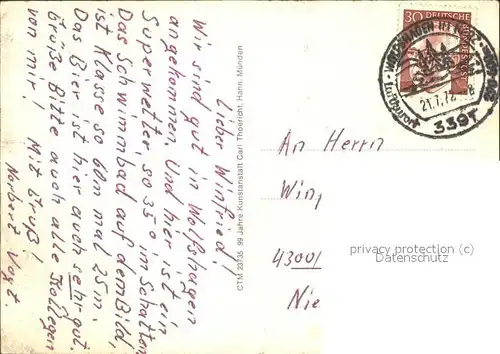 Lieber Winfried!
Wir sind gut in Wolfshagen
angekommen. Und hier ist ein
Superwetter, so 35° im Schatten.
Das Schwimbad auf dem Bild,
ist Klasse so 60m mal 25m.
Das Bier ist hier auch sehr gut.
Grüße Bitte auch alle Kollegen
von mir! Mit Gruß!
Norbert Vogt.
CTM 23735 99 Jahre Kunstanstalt Carl Thoericht, Hann. Münden
30 DEUTSCHE
BUNDESPOST
WOLFSHAGEN IM HARZ
21.7.72
Luftkurort
3391
An Herrn
Win
4300
Nie
privacy protection (c)
Datenschutz